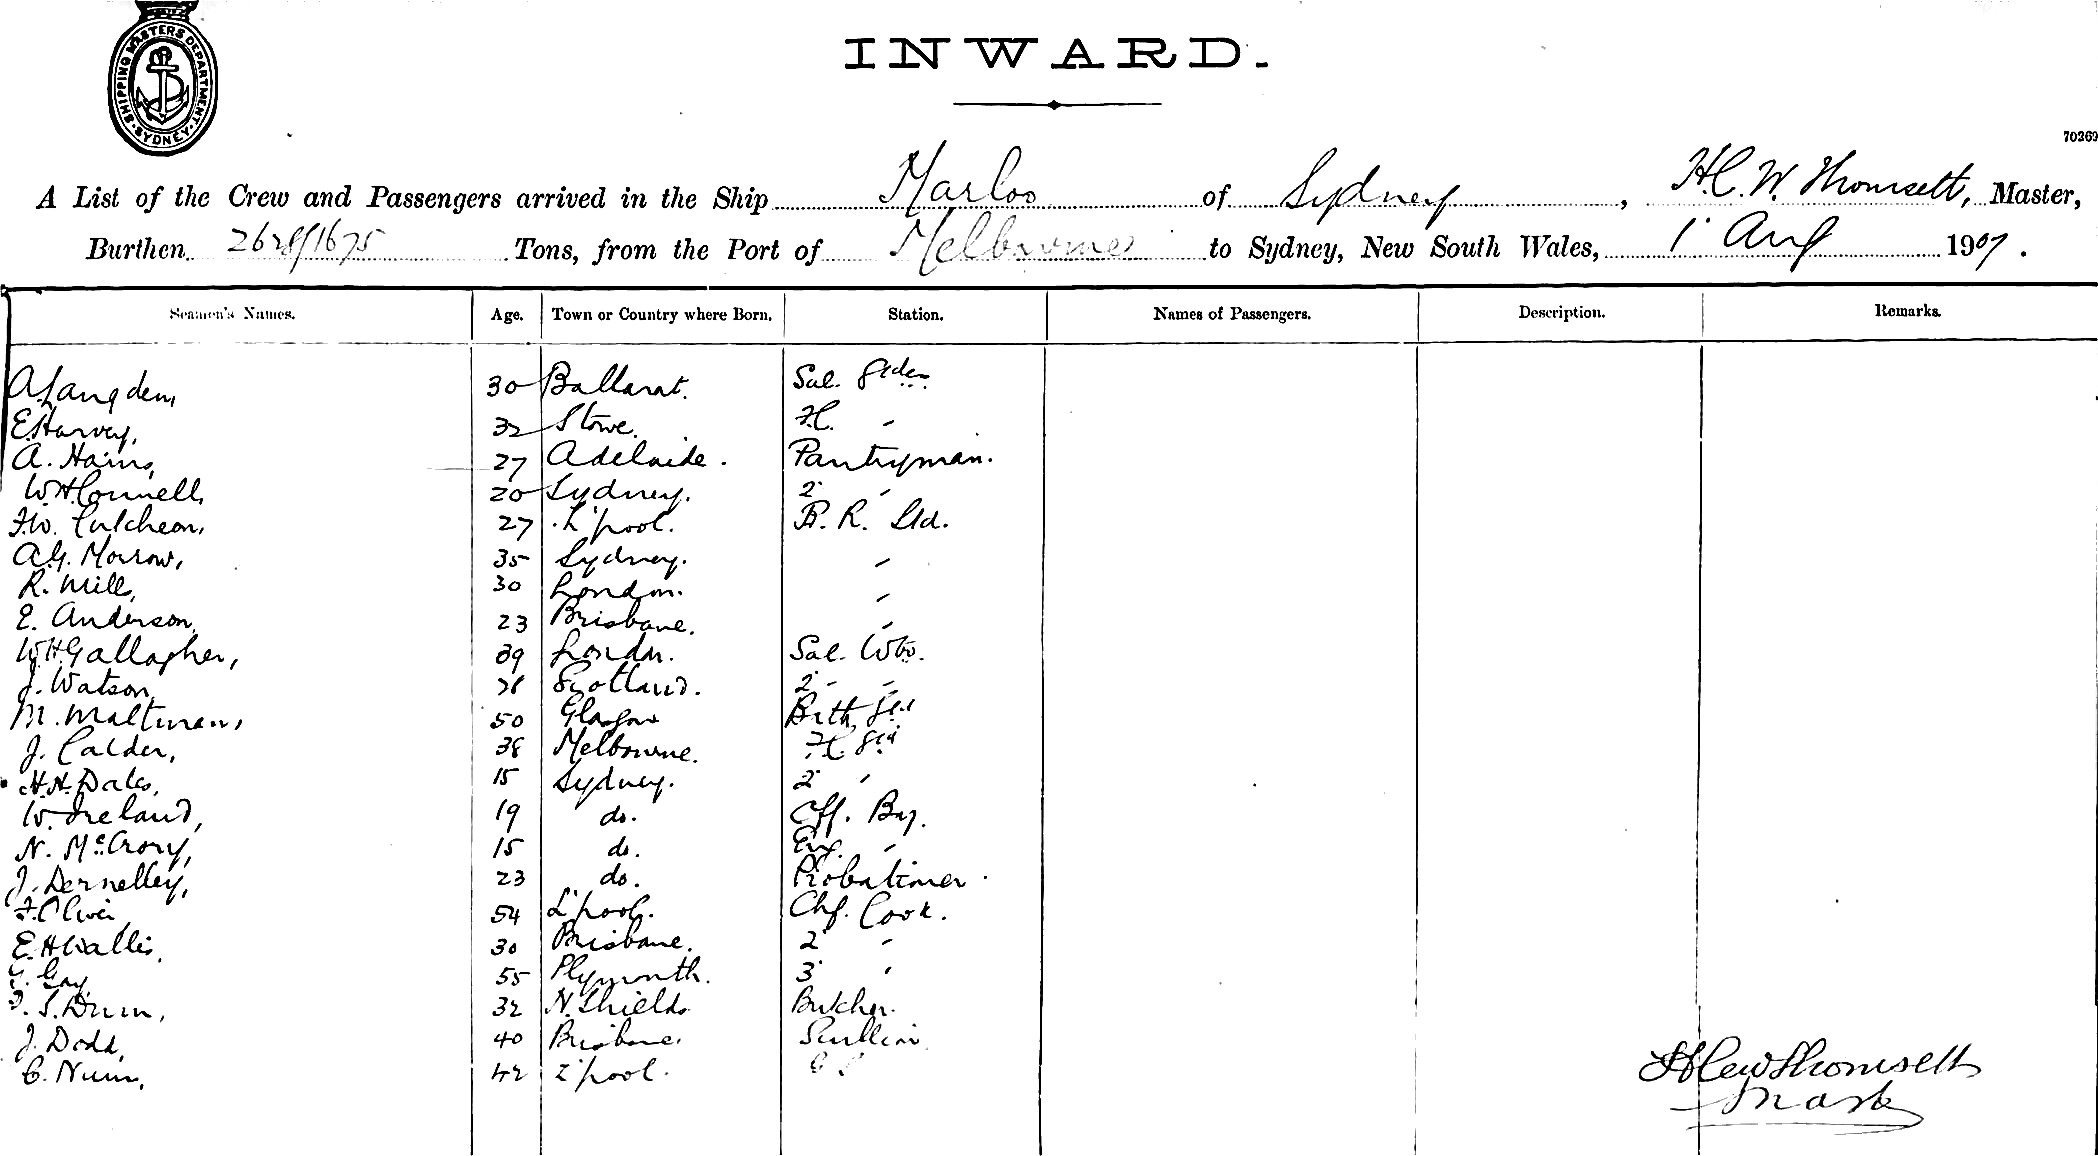 SHIPPING MASTERS DEPARTMENT. SYDNEY.
INWARD.
70369
A List of the Crew and Passengers arrived in the Ship Marloo of Sydney, H.C.W. Thomsett, Master,
Burthen 2628/1675 Tons, from the Port of Melbourne to Sydney, New South Wales, 1 Aug 1907.
Seamen's Names. Age. Town or Country where Born. Station. Names of Passengers. Description. Remarks.
A Langden, 30 Ballarat. Sal.
E Harvey, 32 Stowe. F.C. "
A. Hains, 27 Adelaide. Pantryman.
W.H. Connell, 20 Sydney. 2 "
F.W. Cutcheon, 27 L'pool. B. R. Std.
A.G. Morrow, 35 Sydney. "
R. Mill, 30 London. "
E. Anderson, 23 Brisbane. "
W.H. Gallagher, 39 London. Sal. Wtr.
J. Watson, Scotland. 2 " "
M. 50 Glasgow Bth Std
J. Calder, 38 Melbourne. F.C. Std
H.H. Dales, 15 Sydney. 2 "
W. Ireland, 19 do. Off. Boy.
N. McCrory, 15 do. Eng. "
J. Dernelley, 23 do. Probationer.
F. Oliver 54 L'pool. Chf. Cook.
E. H Wallis, 30 Brisbane. 2 "
Gay, 55 Plymouth. 3 "
S. Dunn, 32 N. Shields Butcher.
J. Dodd, 40 Brisbane. Scullion
C. Nunn, 42 L'pool.
HCW Thomsett
Master